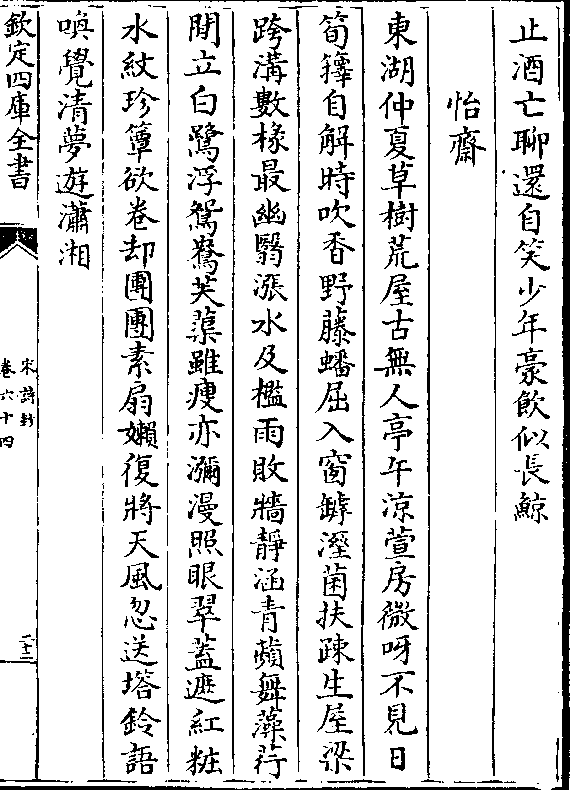 止酒亡聊還自笑少年豪飲似長鯨
怡齋
東湖仲夏草樹荒屋古無人亭午涼萱房微呀不見日
筍籜自解時吹香野藤蟠屈入窗罅溼菌扶踈生屋梁
跨溝數椽最幽翳漲水及檻雨敗牆靜涵青蘋舞藻荇
閒立白鷺浮鴛鴦芙蕖雖瘦亦瀰漫照眼翠蓋遮紅粧
水紋珍簟欲卷却團團素扇嬾復將天風忽送塔鈴語
喚覺清夢遊瀟湘
欽定四庫全書
宋詩鈔
卷六十四
二十二